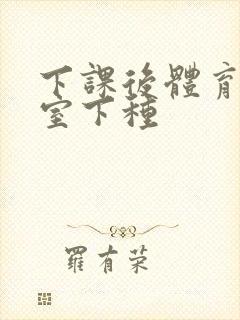 下課後體育
室下種
羅有荣